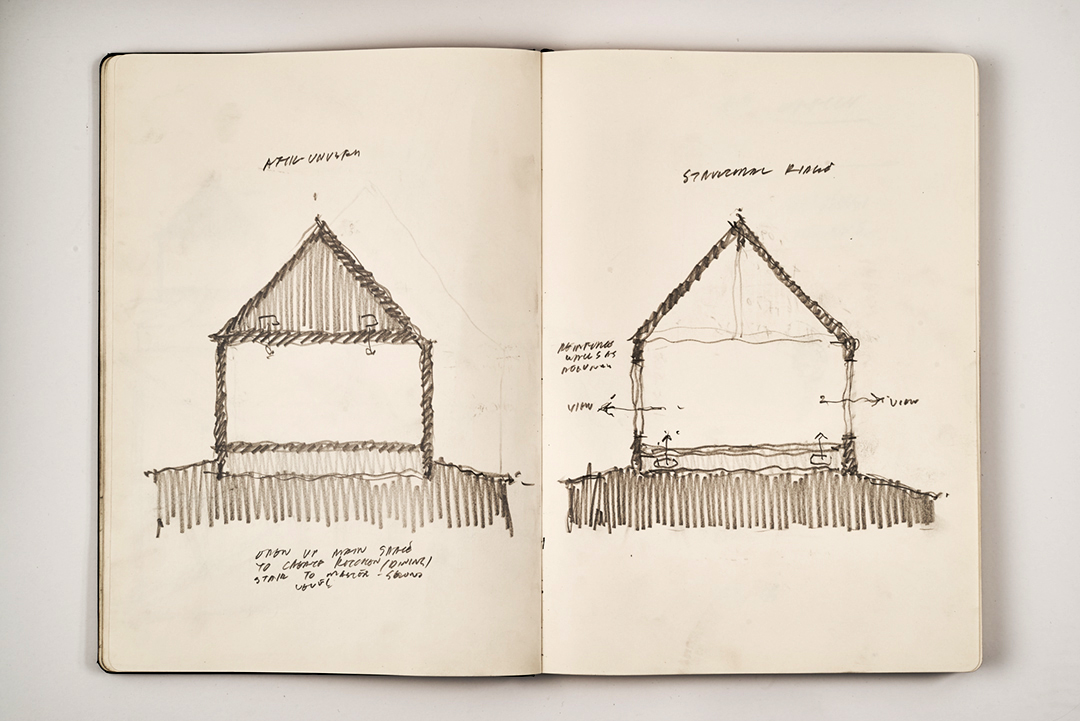 ATTIC
OPEN UP MAIN SPACE
TO CREATE KITCHEN/DINING/
STAIR TO MASTER - SECOND
LEVEL
STRUCTURAL RIDGE
REINFORCED
WALLS AS
VIEW
VIEW